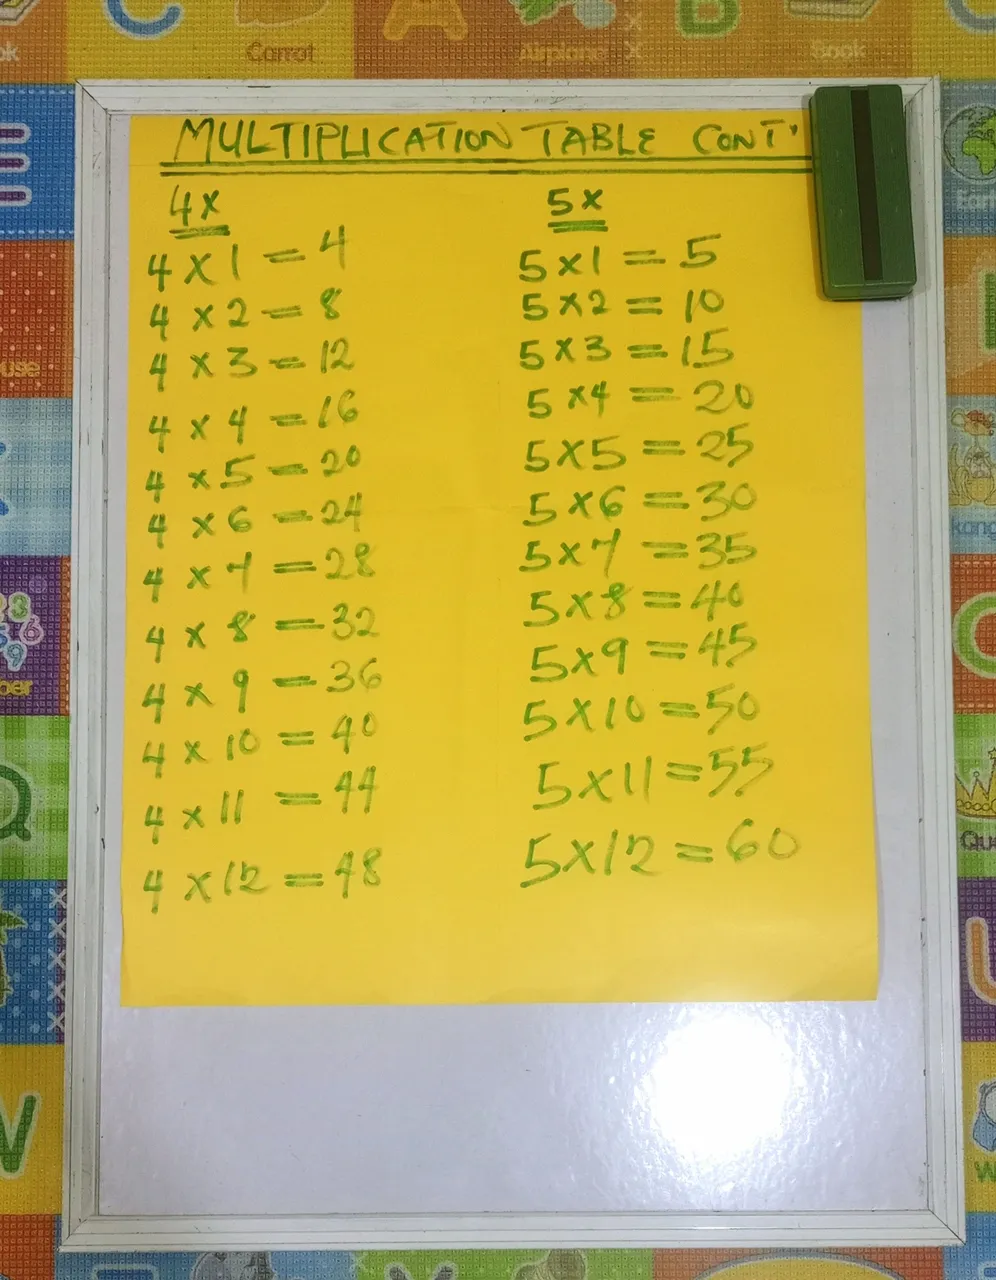 ok
Carrot
Airplane
Book
MULTIPLICATION TABLE CONT'
4x
4 x 1 = 4
4 x 2 = 8
4 x 3 = 12
4 x 4 = 16
4 x 5 = 20
4 x 6 = 24
4 x 7 = 28
4 x 8 = 32
4 x 9 = 36
4 x 10 = 40
4 x 11 = 44
4 x 12 = 48
5x
5 x 1 = 5
5 x 2 = 10
5 x 3 = 15
5 x 4 = 20
5 x 5 = 25
5 x 6 = 30
5 x 7 = 35
5 x 8 = 40
5 x 9 = 45
5 x 10 = 50
5 x 11 = 55
5 x 12 = 60
use
kang
ber
Que